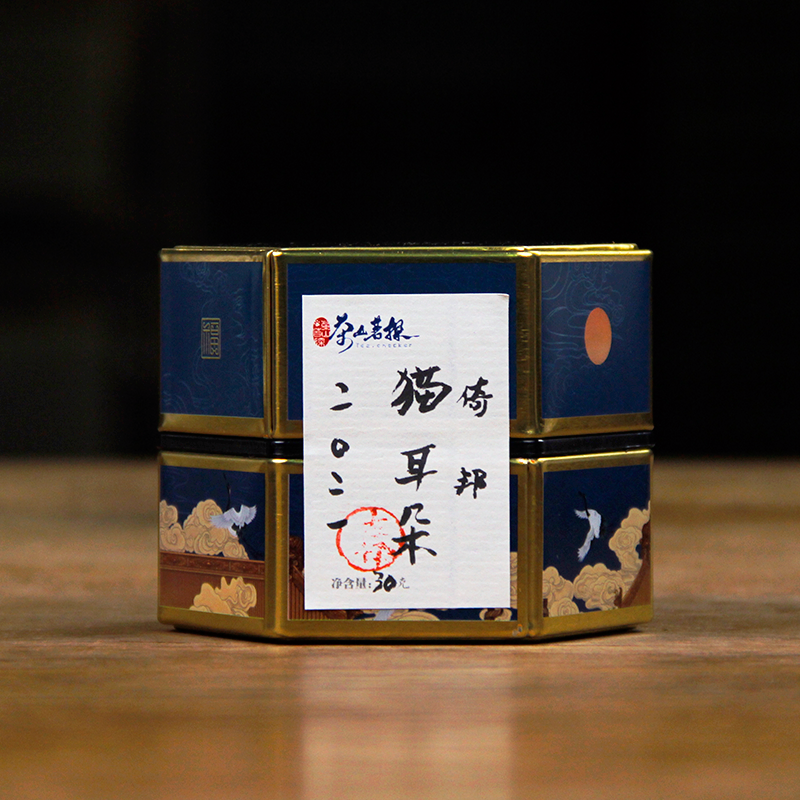 福
茶山茗探
倚邦
猫耳朵
二〇二一
净含量:30克